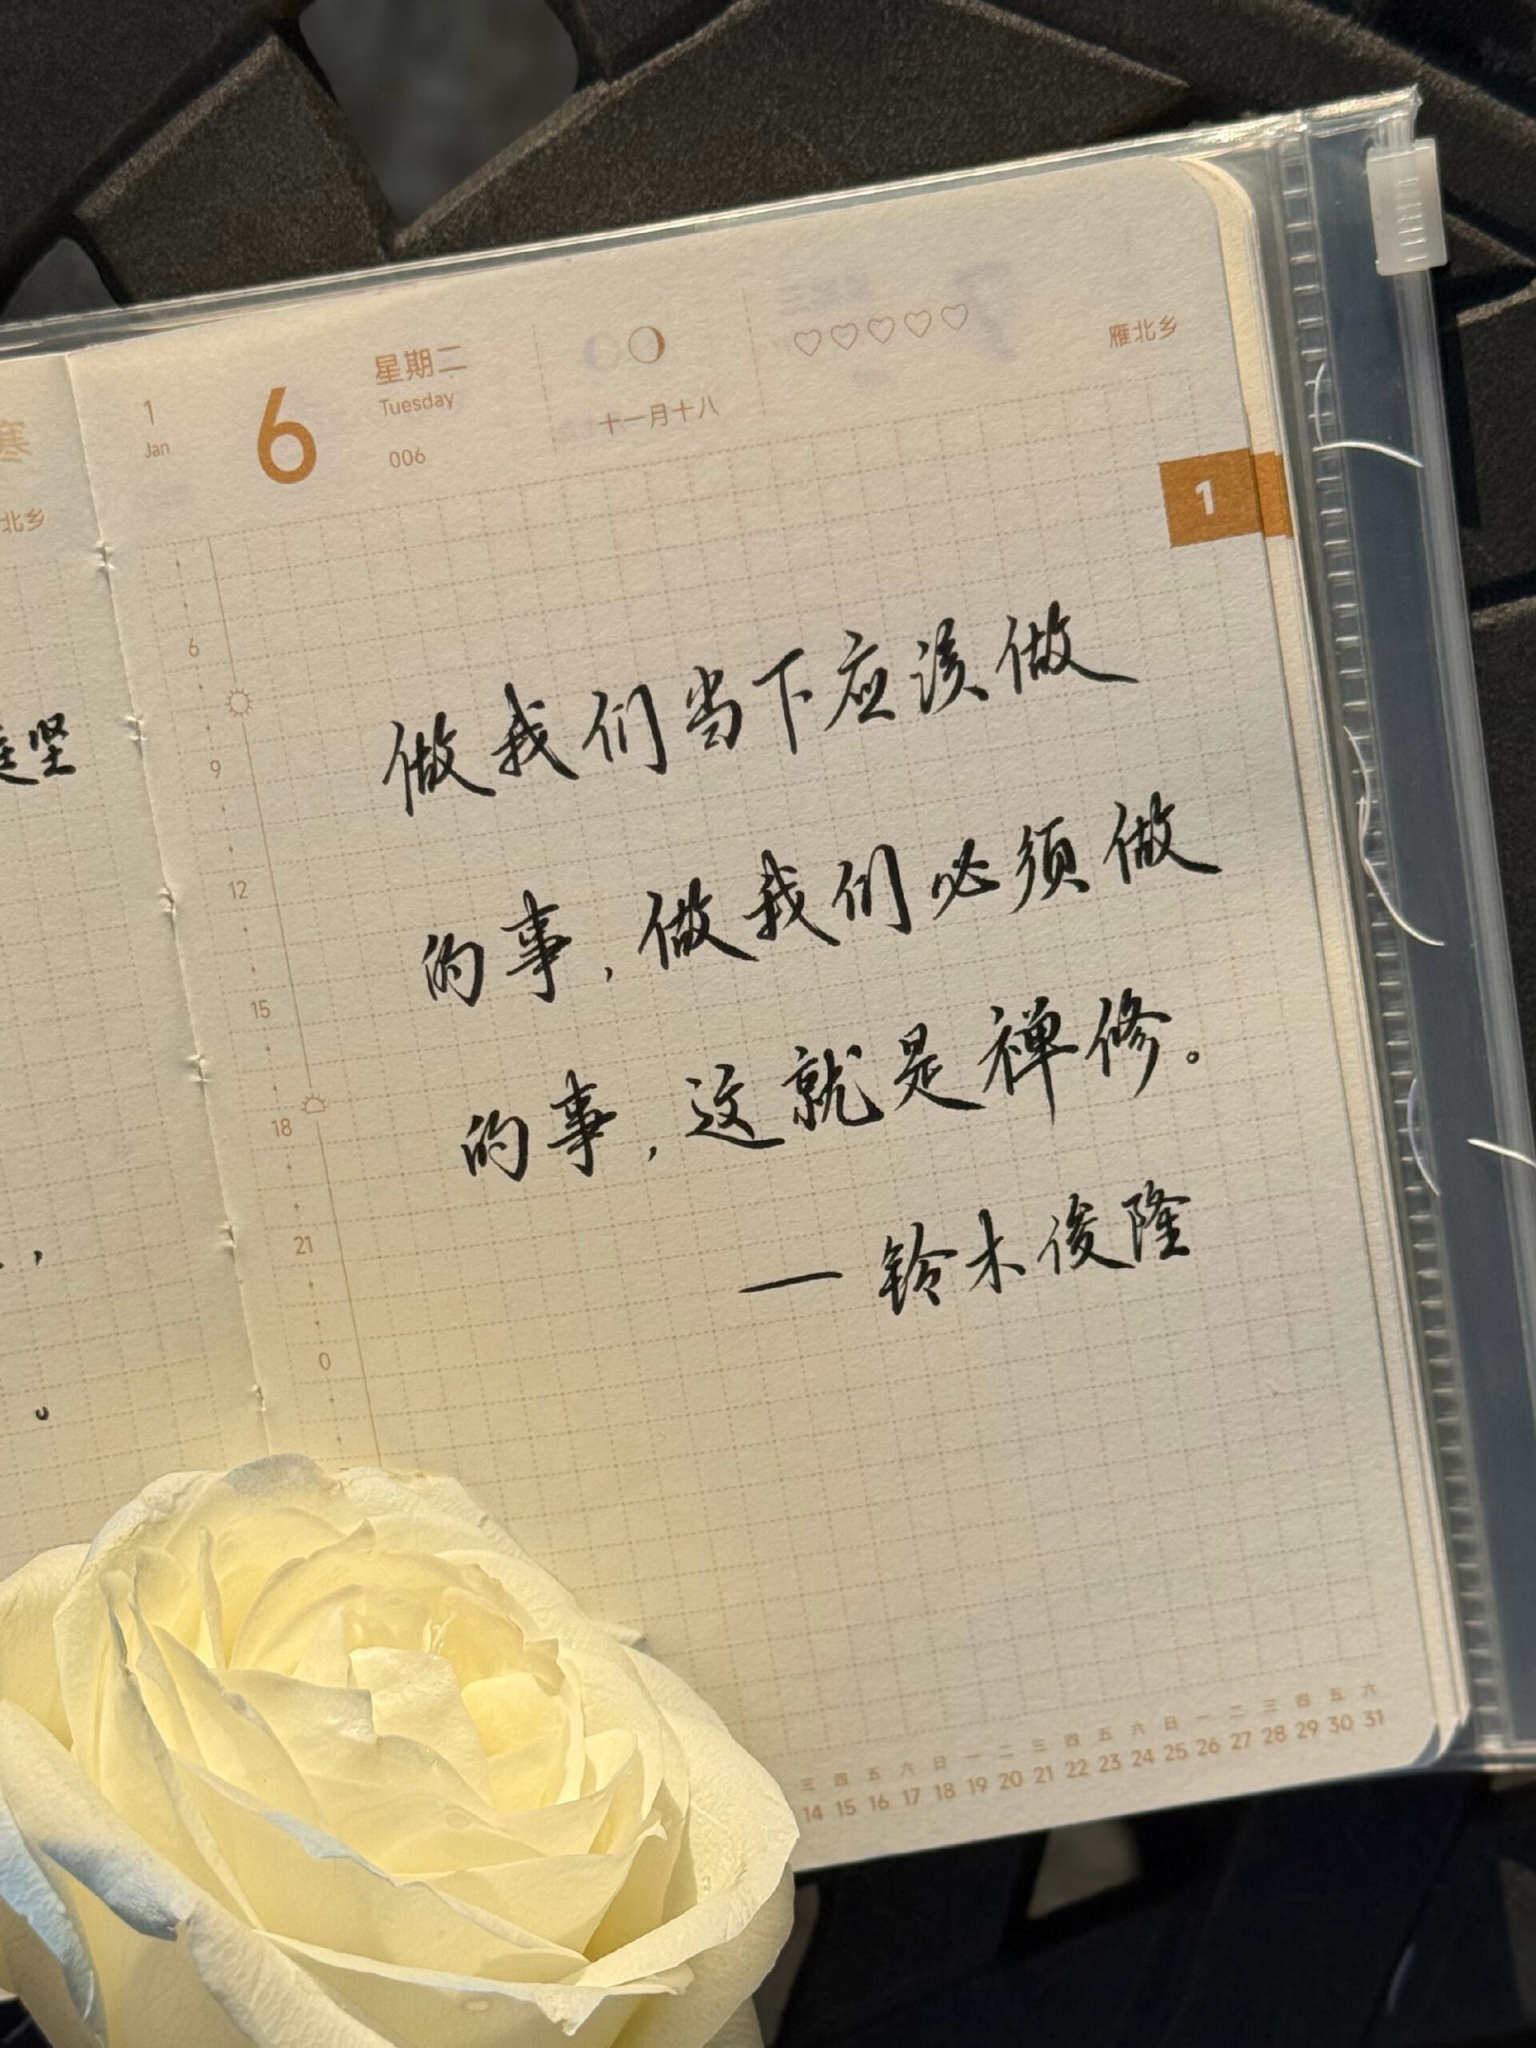 寒
北乡
庭坚
，
。
1
Jan
6
星期二
Tuesday
006
十一月十八
♡♡♡♡♡
雁北乡
1
6
9
12
15
18
21
0
做我们当下应该做
的事，做我们必须做
的事，这就是禅修。
— 铃木俊隆
三 四 五 六 日 一 二 三 四 五 六 日 一 二 三 四 五 六
14 15 16 17 18 19 20 21 22 23 24 25 26 27 28 29 30 31